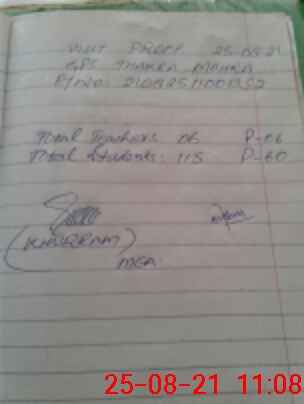 VISIT PROOF 25-08-21
GPS THAKRA MOHRA
Total Teachers: 06 P-06
Total Students: 115 P-60
(KHURRAM)
MEA.
25-08-21 11:08